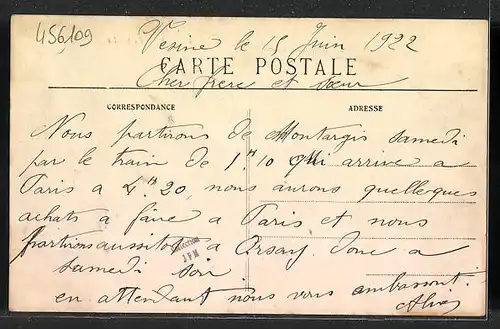 456,109
Vesine le 15 Juin 1922
CARTE POSTALE
Cher frere et soeur
CORRESPONDANCE
ADRESSE
Nous partirons de Montargis samedi
par le train de 1.H 10 qui arrive a
Paris a 4.H 20, nous aurons quelleques
achats a faire a Paris et nous
partirons aussitot a Orsay. Donc a
samedi soir
en attendant nous vous embassont.
Collection
JFM